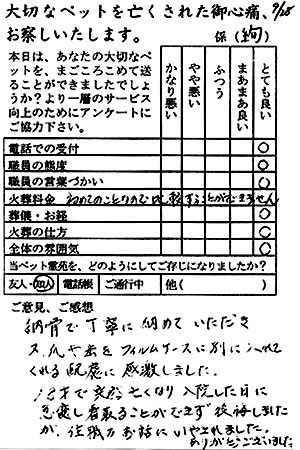 大切なペットを亡くされた御心痛、9/28
お察しいたします。 係(絢)
本日は、あなたの大切なペ
ットを、まごころこめて送
ることができましたでしょ
うか?より一層のサービス
向上のためにアンケートに
ご協力下さい。
かなり悪い
やや悪い
ふつう
まあまあ良い
とても良い
電話での受付 ○
職員の態度 ○
職員の言葉づかい ○
火葬料金 初めてのことなので比較することができません
葬儀・お経 ○
火葬の仕方 ○
全体の雰囲気 ○
当ペット霊苑を、どのようにしてご存じになりましたか?
友人・知人 電話帳 ご通行中 他( )
ご意見、ご感想
納骨で丁寧に納めていただき
又、爪や歯をフィルムケースに別に入れて
くれる配慮に感激しました。
18才で突然亡くなり入院した日に
急変し看取ることができず後悔しました
が、住職のお話にいやされました。
ありがとうございました。